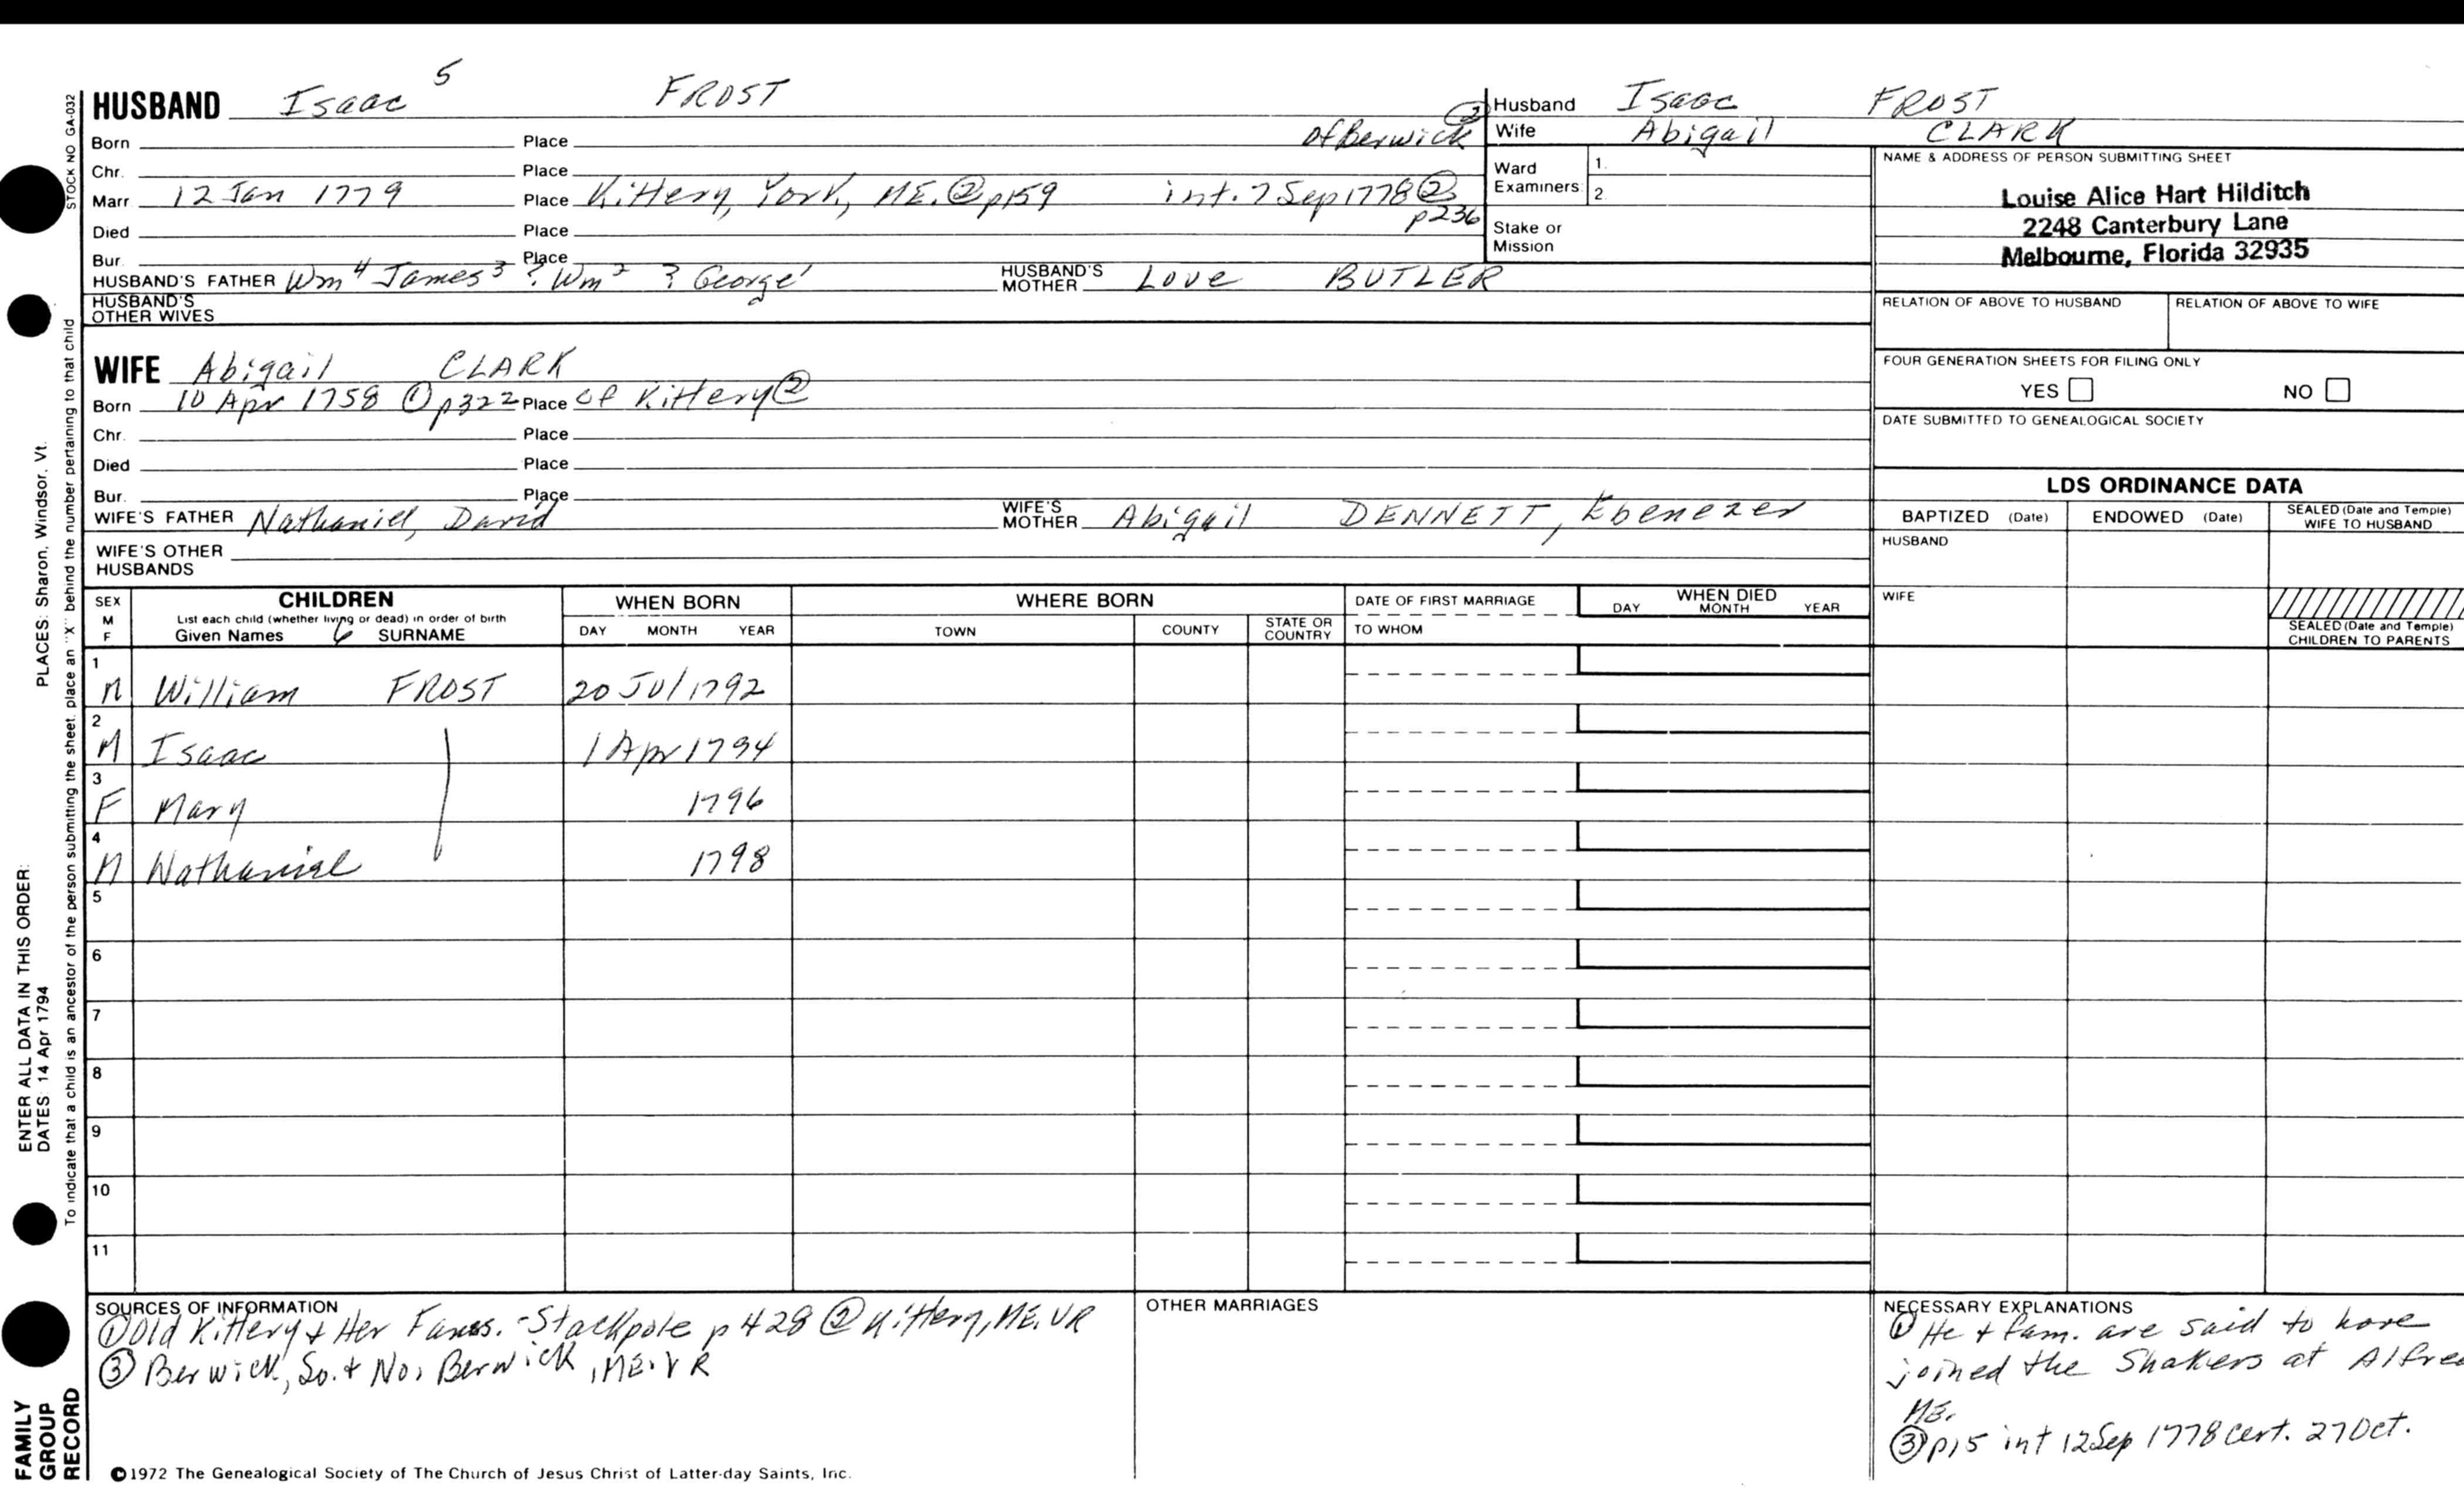 HUSBAND Isaac 5 FROST
Born Place of Berwick ③
Chr. Place
Marr. 12 Jan 1779 Place Kittery, York, ME. ② p159 int. 7 Sep 1778 ② p236
Died Place
Bur. Place
HUSBAND'S FATHER Wm 4 James 3 ? Wm 2 ? George 1 HUSBAND'S MOTHER Love BUTLER
HUSBAND'S OTHER WIVES
WIFE Abigail CLARK
Born 10 Apr 1758 ① p322 Place of Kittery ②
Chr. Place
Died Place
Bur. Place
WIFE'S FATHER Nathaniel, David WIFE'S MOTHER Abigail DENNETT, Ebenezer
WIFE'S OTHER HUSBANDS
Husband Isaac FROST
Wife Abigail CLARK
Ward Examiners 1.
2.
Stake or Mission
NAME & ADDRESS OF PERSON SUBMITTING SHEET
Louise Alice Hart Hilditch
2248 Canterbury Lane
Melbourne, Florida 32935
RELATION OF ABOVE TO HUSBAND RELATION OF ABOVE TO WIFE
FOUR GENERATION SHEETS FOR FILING ONLY
YES NO
DATE SUBMITTED TO GENEALOGICAL SOCIETY
LDS ORDINANCE DATA
BAPTIZED (Date) ENDOWED (Date) SEALED (Date and Temple) WIFE TO HUSBAND
HUSBAND
WIFE
SEALED (Date and Temple) CHILDREN TO PARENTS
SEX M F CHILDREN WHEN BORN WHERE BORN DATE OF FIRST MARRIAGE WHEN DIED
List each child (whether living or dead) in order of birth
Given Names SURNAME DAY MONTH YEAR TOWN COUNTY STATE OR COUNTRY TO WHOM DAY MONTH YEAR
1 M William FROST 20 Jul 1792
2 M Isaac 1 Apr 1794
3 F Mary 1796
4 M Nathaniel 1798
5
6
7
8
9
10
11
SOURCES OF INFORMATION
① Old Kittery & Her Fams. - Stackpole p 428 ② Kittery, ME. VR
③ Berwick, So. & No. Berwick, ME. VR
OTHER MARRIAGES
NECESSARY EXPLANATIONS
① He & fam. are said to have
joined the Shakers at
ME.
③ p15 int 12 Sep 1778 cert. 27 Oct.
©1972 The Genealogical Society of The Church of Jesus Christ of Latter-day Saints, Inc.
STOCK NO GA-032
To indicate that a child is an ancestor of the person submitting the sheet, place an "X" behind the number pertaining to that child
PLACES: Sharon, Windsor, Vt.
ENTER ALL DATA IN THIS ORDER:
DATES: 14 Apr 1794
FAMILY
GROUP
RECORD